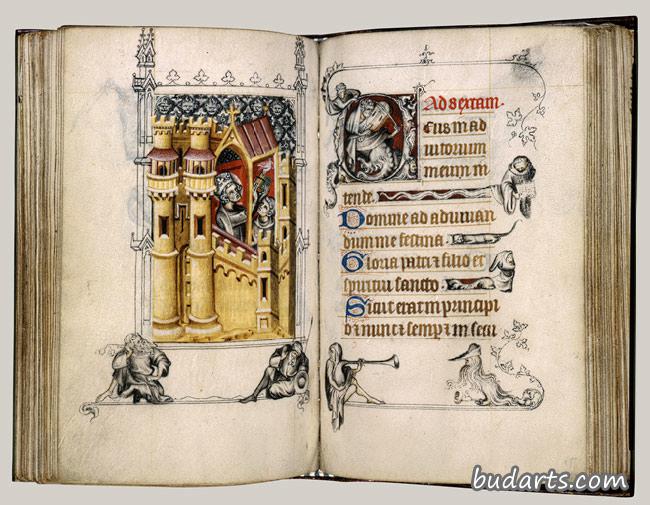 Ad sextam.
Eus in ad
iutorum
meum in
tende.
Domine ad adiuuan
dum me festina.
Gloria patri et filio et
spiritui sancto
Sicut erat in principi
o et nunc et semper et in secu
budarts.com